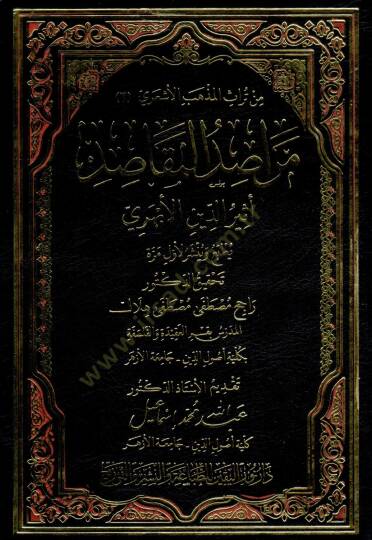 من تراث المذهب الأشعري (٢)
مراصد المقاصد
أثير الدين الأبهري
يطبع وينشر لأول مرة
تحقيق الدكتور
مصطفى مصطفى
المدرس بقسم العقيدة والفلسفة
كلية أصول الدين - جامعة الأزهر
تقديم الأستاذ الدكتور
عبد الله محمد إسماعيل
كلية أصول الدين - جامعة الأزهر
دار للطباعة والنشر والتوزيع
www.